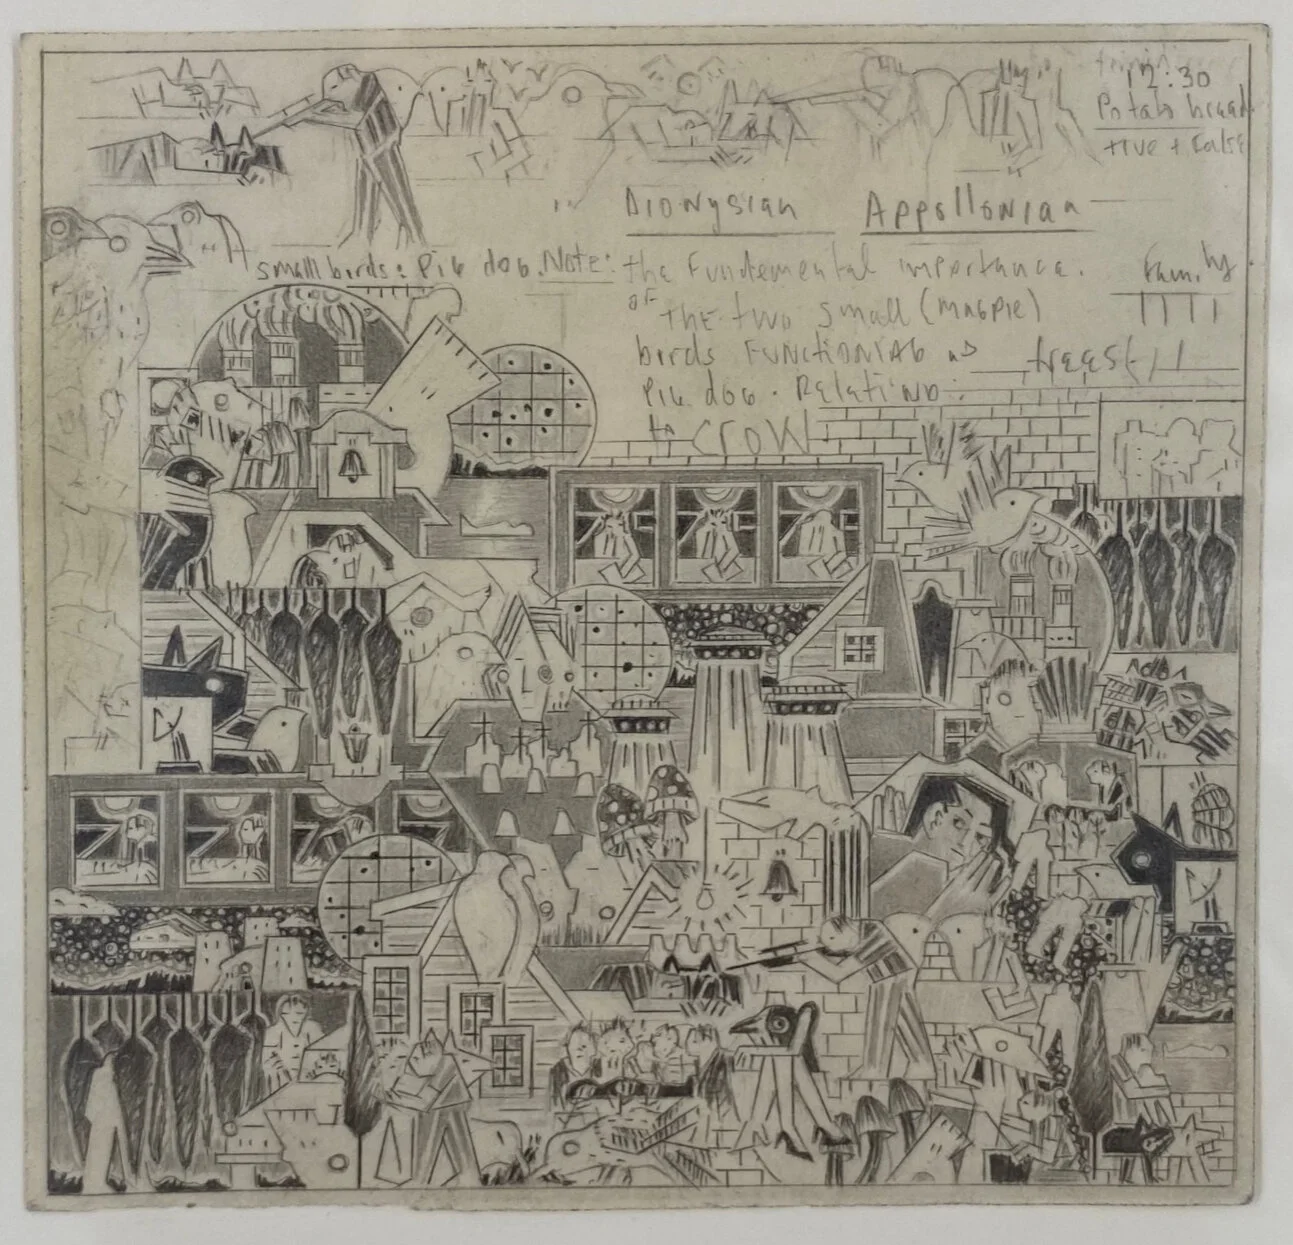 12:30
Potato bread
true + False
Dionysian Appollonian
small birds: Pig dog. Note: the Fundemental importance.
Family
of the two small (magpie)
birds FUNCTIONING as
trees
Pig dog. Relating:
to CROW